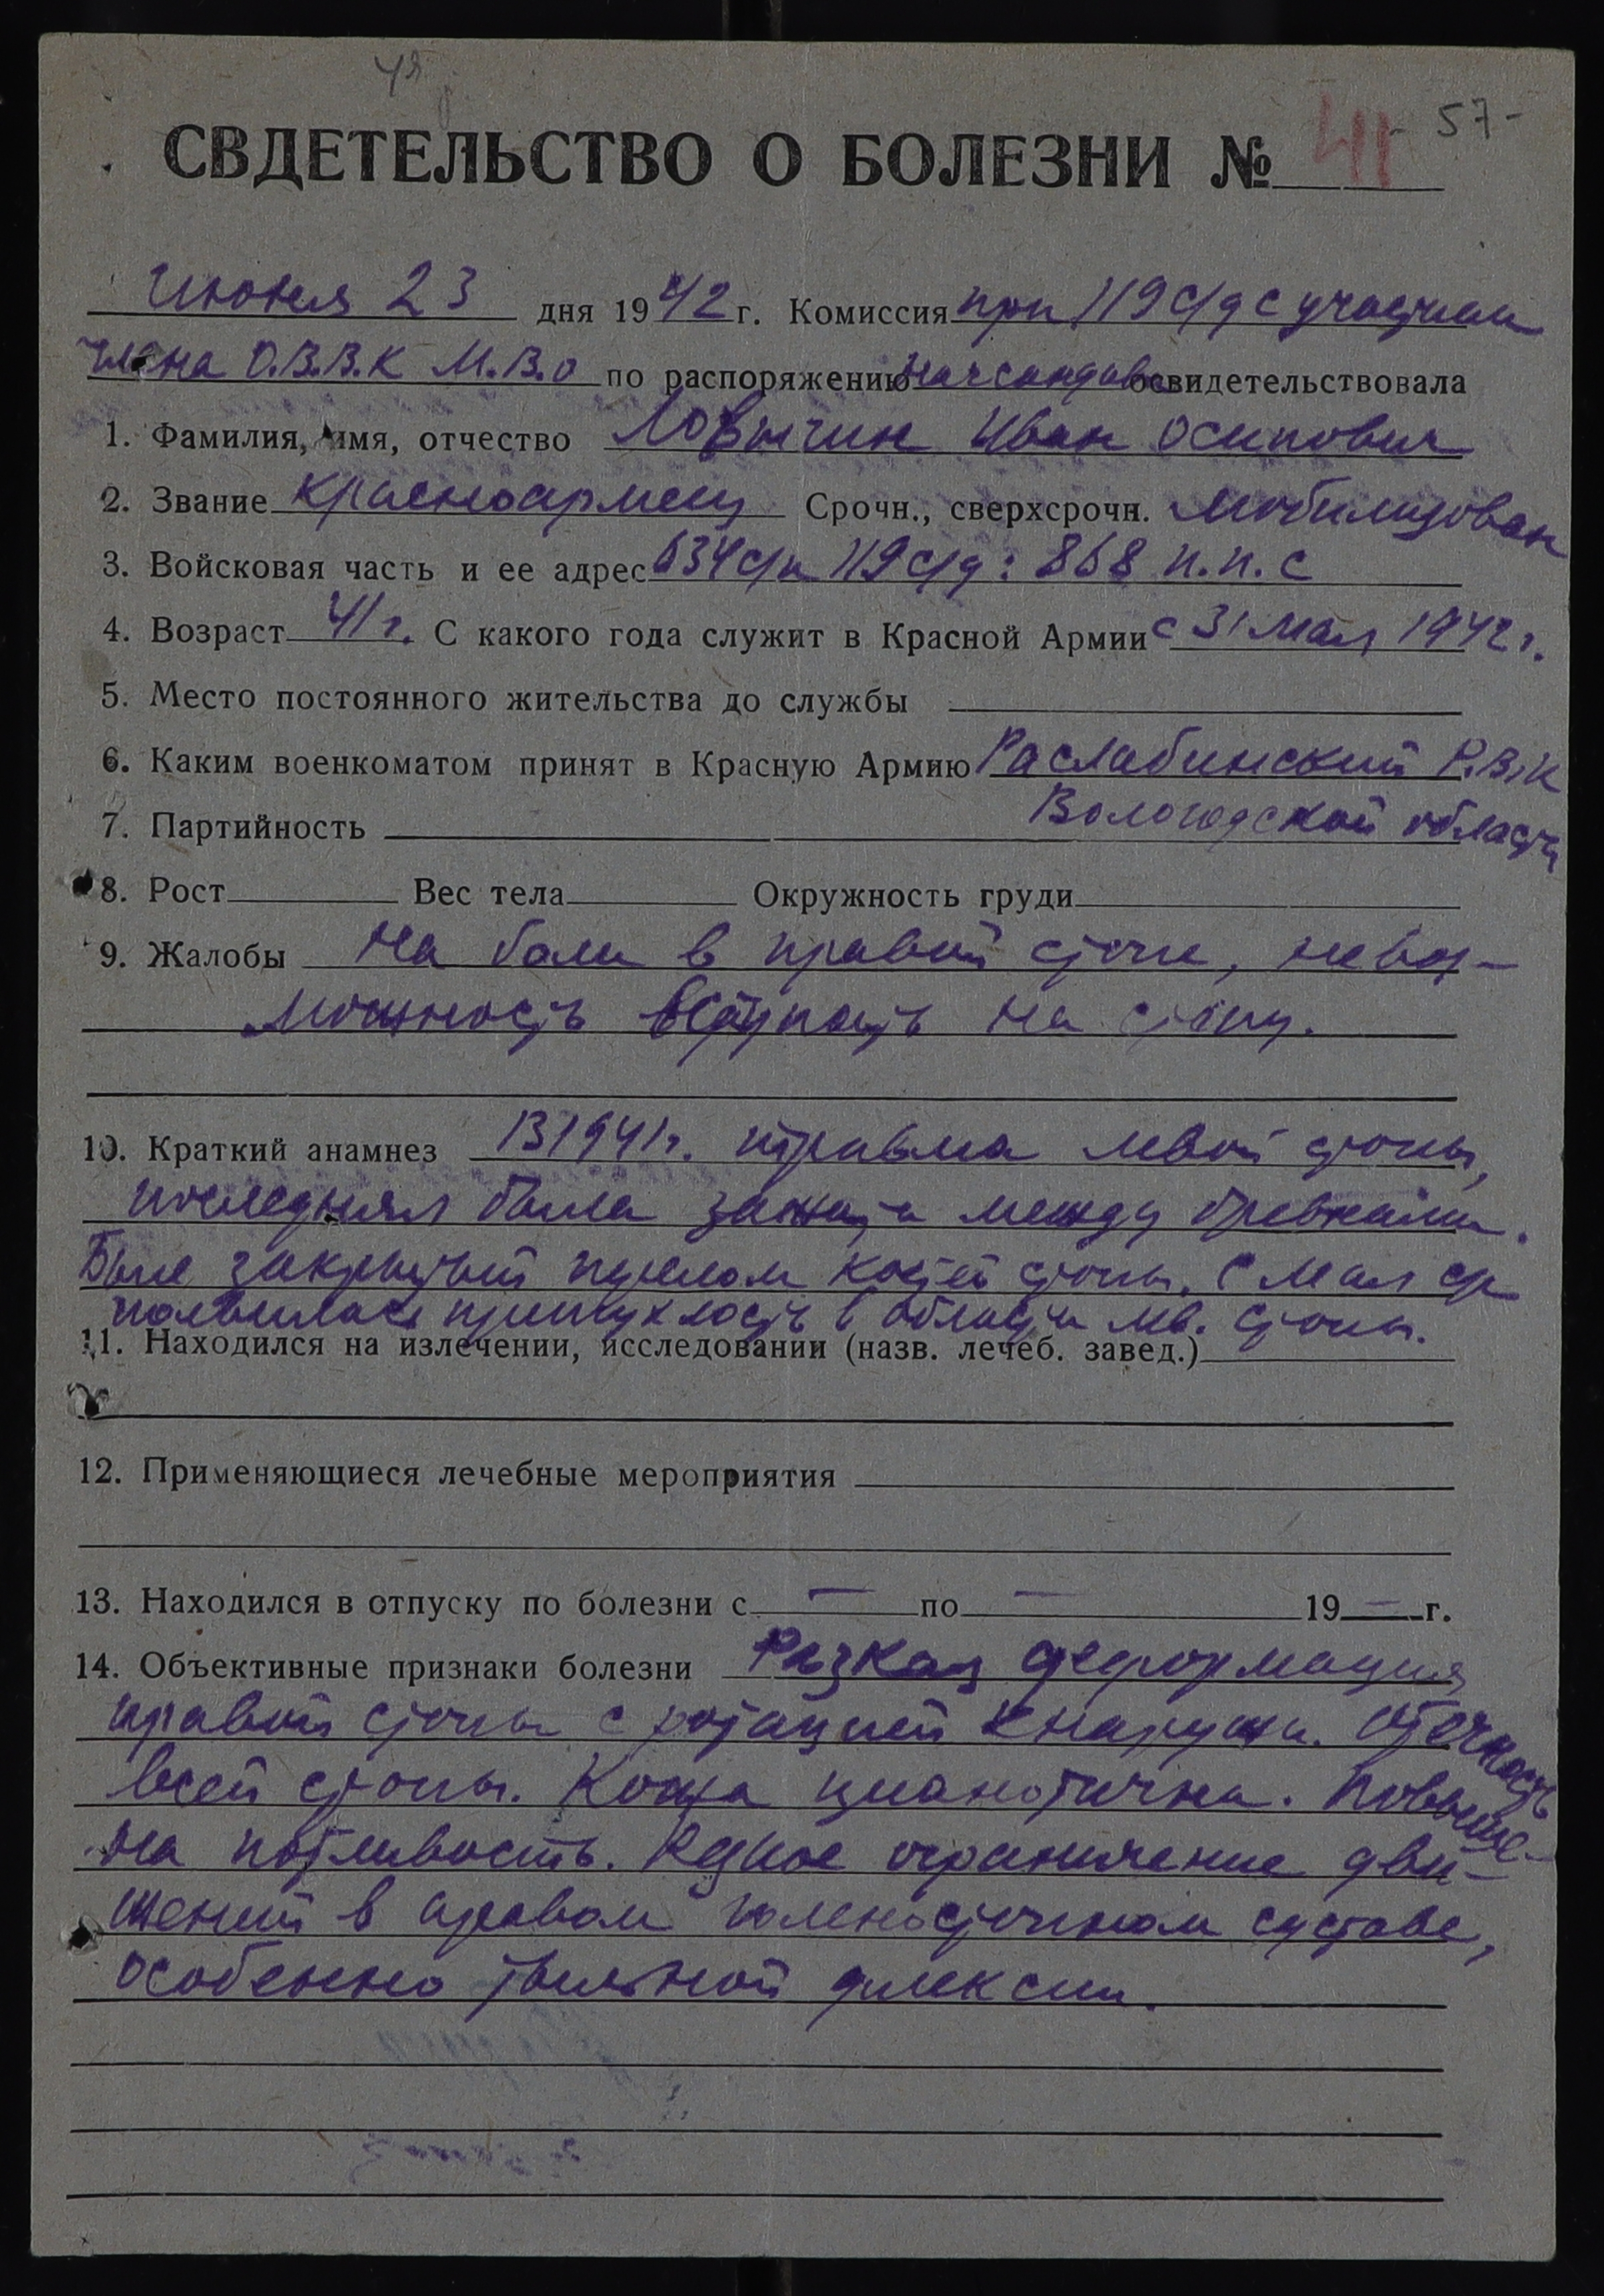 СВДЕТЕЛЬСТВО О БОЛЕЗНИ № 41 - 57 -
Июня 23 дня 1942 г. Комиссия при 119 с/д с участием
члена О.В.В.К М.В.О по распоряжению начсандива освидетельствовала
1. Фамилия, имя, отчество Ловыгин Иван Осипович
2. Звание красноармеец Срочн., сверхсрочн. мобилизован
3. Войсковая часть и ее адрес 634 с/п 119 с/д: 868 п.п.с
4. Возраст 41 г. С какого года служит в Красной Армии с 31 мая 1942 г.
5. Место постоянного жительства до службы
6. Каким военкоматом принят в Красную Армию Раслабинский Р.В.К
Вологодской области
7. Партийность
8. Рост Вес тела Окружность груди
9. Жалобы На боли в правой стопе, невоз-
можность вступать на стопу.
10. Краткий анамнез В 1941 г. травма левой стопы,
последняя была зажата между бревнами.
Был закрытый перелом костей стопы. С мая
появилась припухлость в области лев. стопы.
11. Находился на излечении, исследовании (назв. лечеб. завед.)
12. Применяющиеся лечебные мероприятия
13. Находился в отпуску по болезни с — по — 19 — г.
14. Объективные признаки болезни Резкая деформация
правой стопы с ротацией кнаружи. Отечность
всей стопы. Кожа цианотична. Повыше-
на потливость. Резкое ограничение дви-
жений в правом голеностопном суставе,
особенно тыльной флексии.